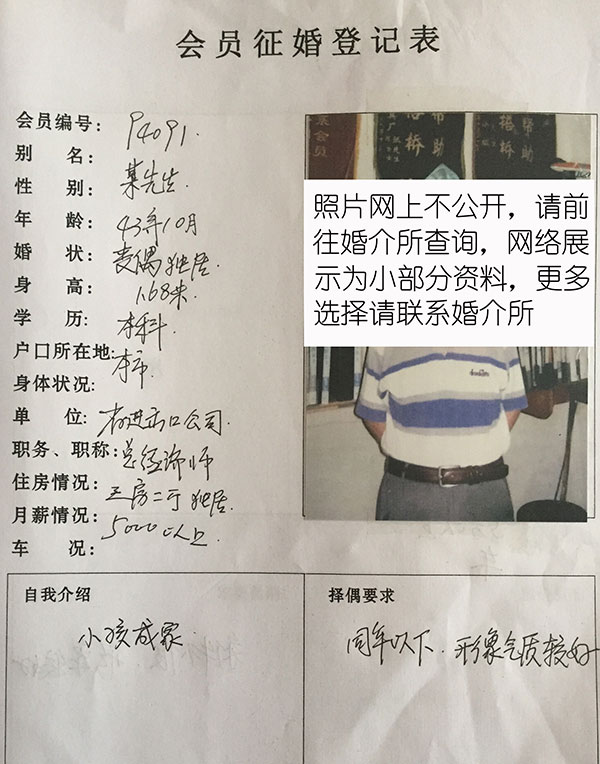 会员征婚登记表
会员编号: 94091.
别 名: 某先生.
性 别:
年 龄: 43年10月
婚 状: 丧偶独居.
身 高: 1.68米.
学 历: 本科
户口所在地: 本市.
身体状况:
单 位: 省进出口公司.
职务、职称: 总经济师
住房情况: 三房二厅独居.
月薪情况: 5000以上
车 况:
帮助
搭桥
帮助
搭桥
会员
照片网上不公开，请前
往婚介所查询，网络展
示为小部分资料，更多
选择请联系婚介所
自我介绍
小孩成家.
择偶要求
同年以下. 形象气质较好